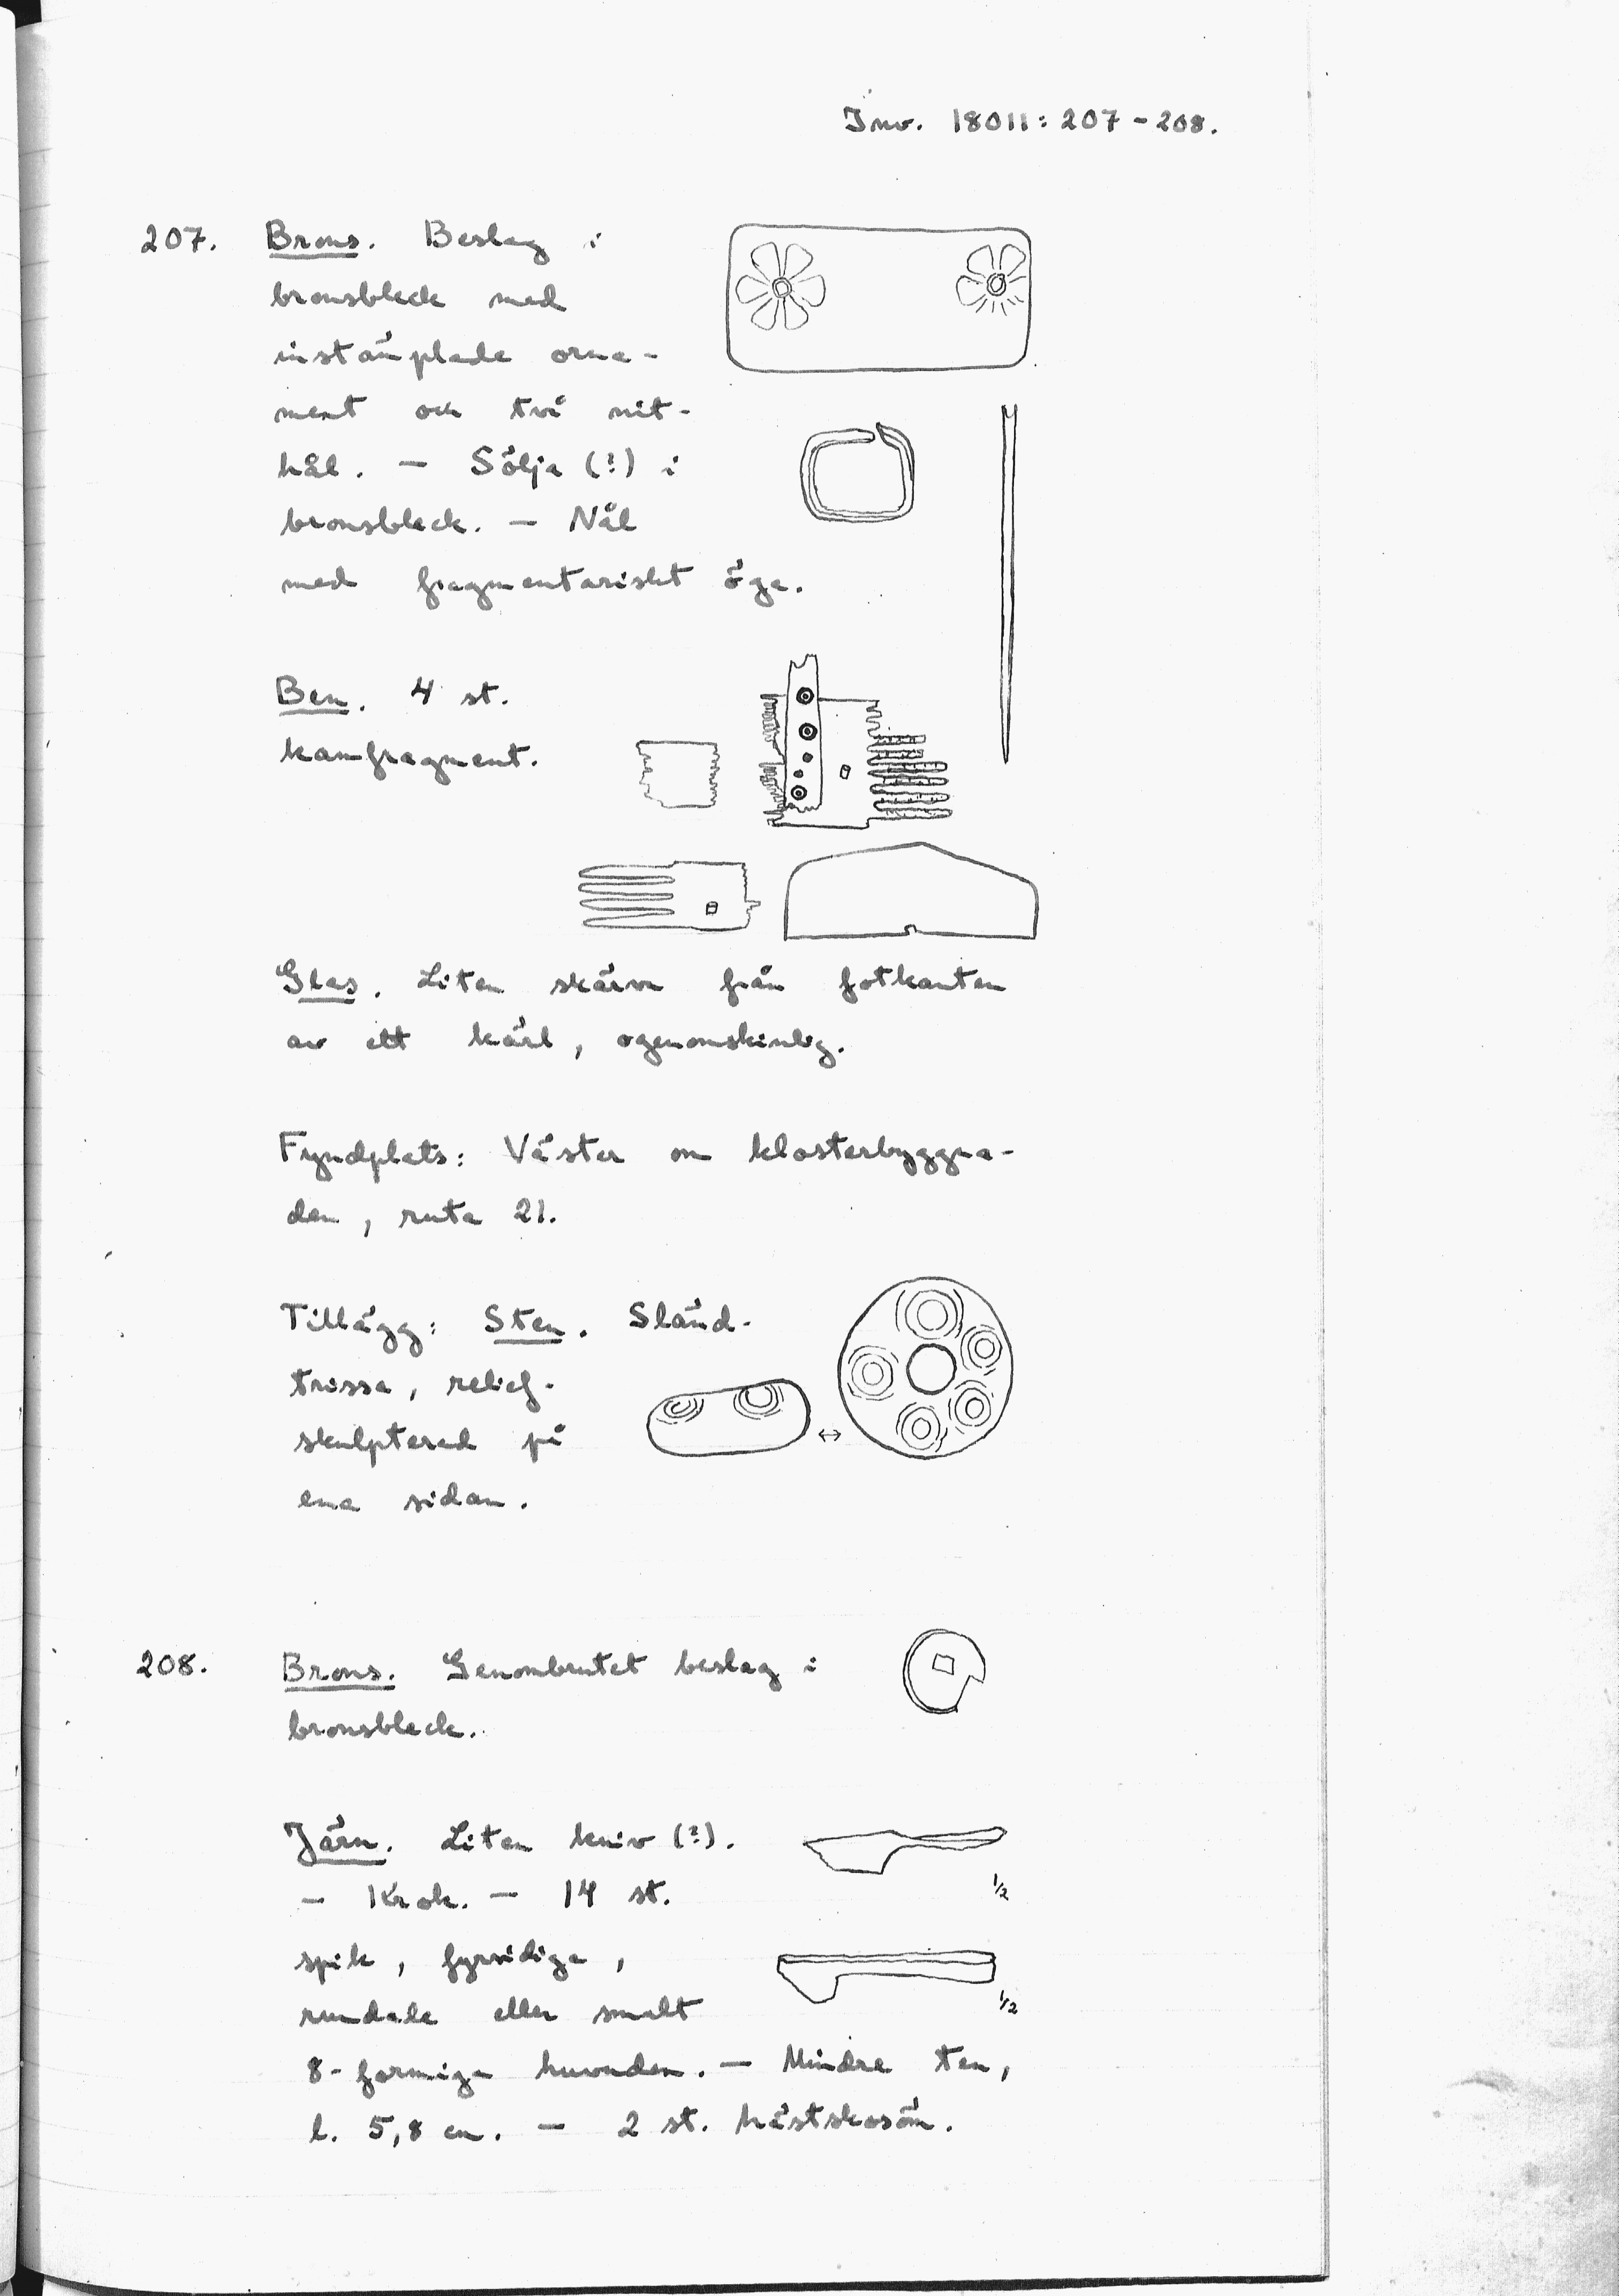 Inv. 18011: 207-208.
207. Brons. Beslag i
bronsbleck med
instämplade orna-
ment och två nit-
hål. — Sölja (?) i
bronsbleck. — Nål
med fragmentariskt öga.
Ben. 4 st.
kamfragment.
Glas. Liten skärva från fotkanten
av ett kärl, ogenomskinlig.
Fyndplats: Väster om klosterbyggna-
den, ruta 21.
Tillägg: Sten. Sländ-
trissa, relief-
skulpterad på
ena sidan.
208. Brons. Genombrutet beslag i
bronsbleck.
Järn. Liten kniv (?).
1/2
— Krok. — 14 st.
spik, fyrsidiga,
1/2
rundade eller smalt
8-formiga huvuden. — Mindre ten,
l. 5,8 cm. — 2 st. hästskosöm.